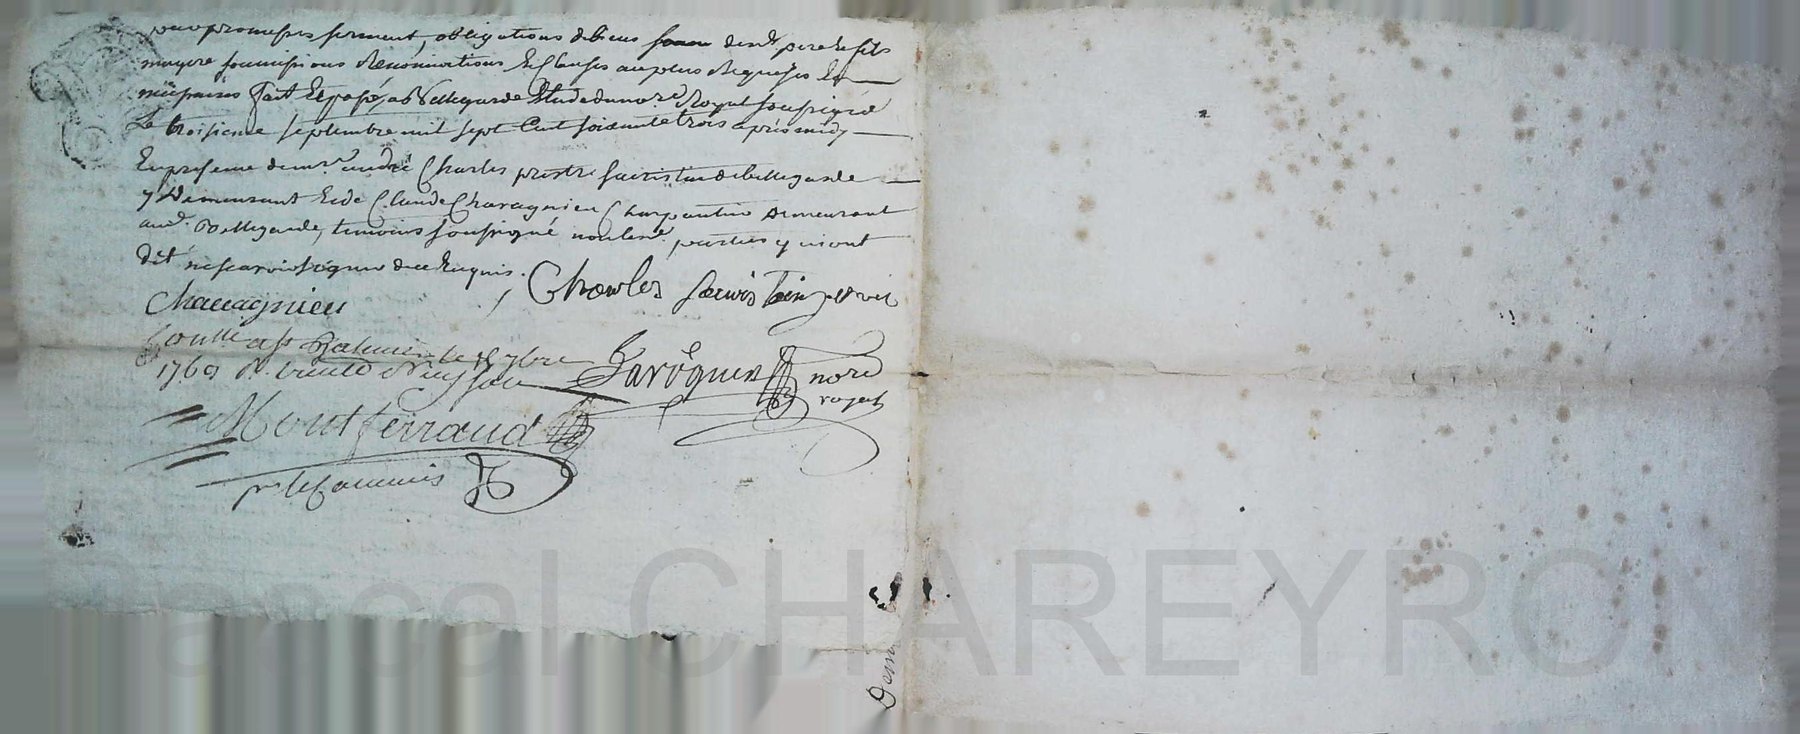 par promesses serment, obligations de biens desd. pere et fils
moyere soumissions renonciations et clauses au plus requises et
necessaires fait et passé a Bellegarde Etude du no.re Royal soussigné
Le troisieme septembre mil sept Cent soixante trois apres midy
En presence de m.re andré Charles prestre sacristain de bellegarde
y Demeurant et de Claude Charagnieu Charpantier demeurant
aud. Bellegarde, temoins soussigné non lesd. parties qui ont
dit ne scavoir signer de ce Enquis.
Charles sacristain
Charagnieu
7bre
1763
Montferraud
Savoguin nore
royal
p.r le Commis
Pascal CHAREYRON